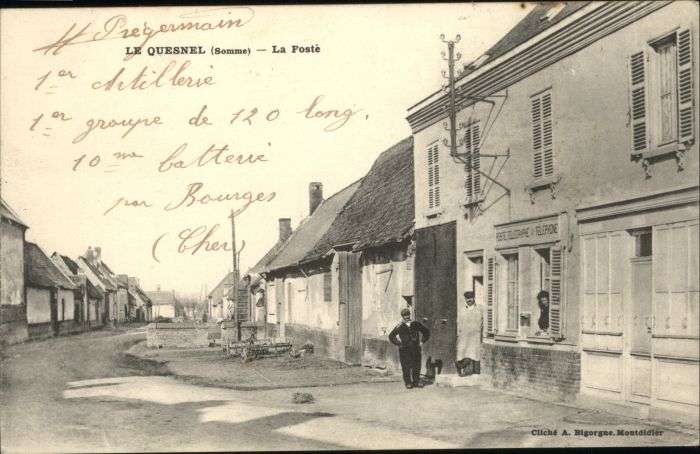 M Prégermain
LE QUESNEL (Somme) — La Poste
1er Artillerie
1er groupe de 120 long,
10me batterie
par Bourges
(Cher)
POSTE TELEGRAPHE & TELEPHONE
Cliché A. Bigorgne. Montdidier